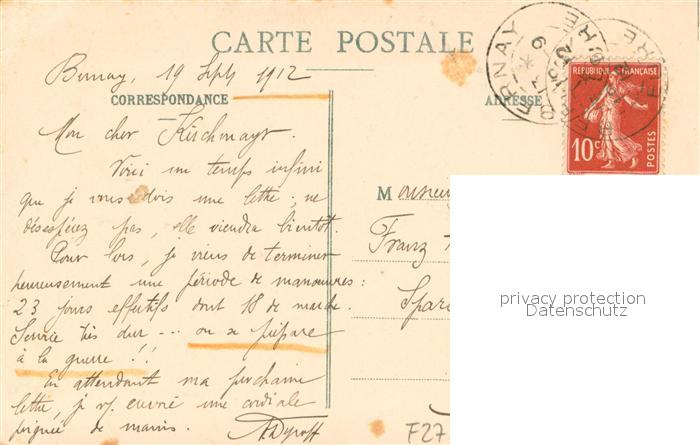 CARTE POSTALE
Bernay, 19 Sept 1912
CORRESPONDANCE
Mon cher Kirchmayr.
Voici un temps infini
que je vous dois une lettre : ne
désespérez pas, elle viendra bientôt.
Pour lors, je viens de terminer
heureusement une période de manœuvres :
23 jours effectifs dont 18 de marche.
Service très dur ... on se prépare
à la guerre !!
En attendant ma prochaine
lettre, je vs. envoie une cordiale
poignée de mains.
ADRESSE
BERNAY
REPUBLIQUE FRANÇAISE
10c
POSTES
Monsieur
Franz
Spar
privacy protection
Datenschutz
F27